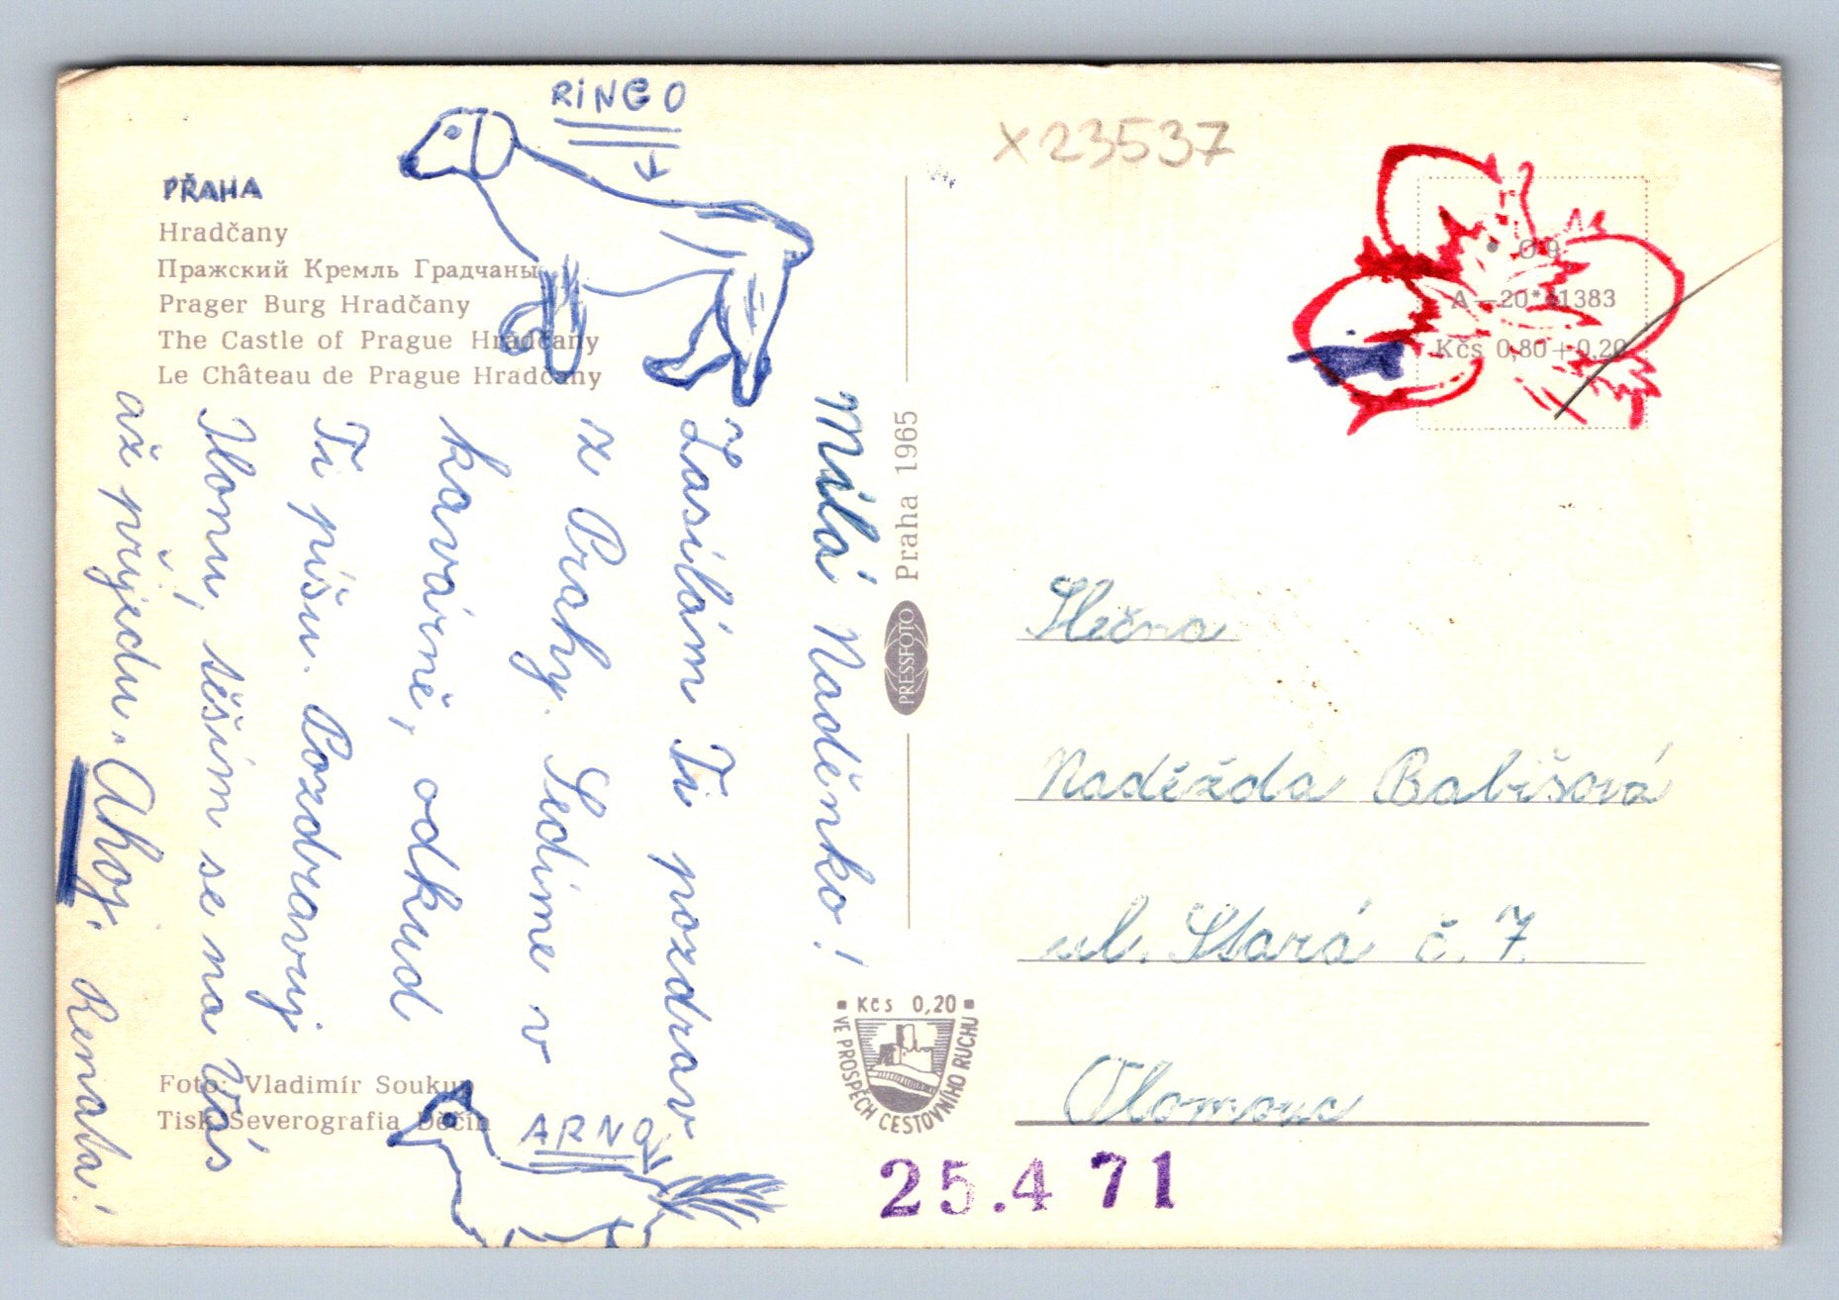 RINGO
PŘAHA
Hradčany
Пражский Кремль Градчаны
Prager Burg Hradčany
The Castle of Prague Hradčany
Le Château de Prague Hradčany
Milá Naděnko!
Zasílám Ti pozdrav
z Prahy. Sedíme v
kavárně, odkud
Ti píšu. Pozdravuj
Ilonu, těším se na Vás
až přijedu. Ahoj.
Renata!
Foto: Vladimír Soukup
Tisk Severografia Děčín
ARNO
Praha 1965
PRESSFOTO
Kčs 0,20
VE PROSPĚCH CESTOVNÍHO RUCHU
25.4 71
x23537
O-9
A—20*61383
Kčs 0,80+0,20
Slečna
Naděžda Babišová
ul. Stará č. 7.
Olomouc